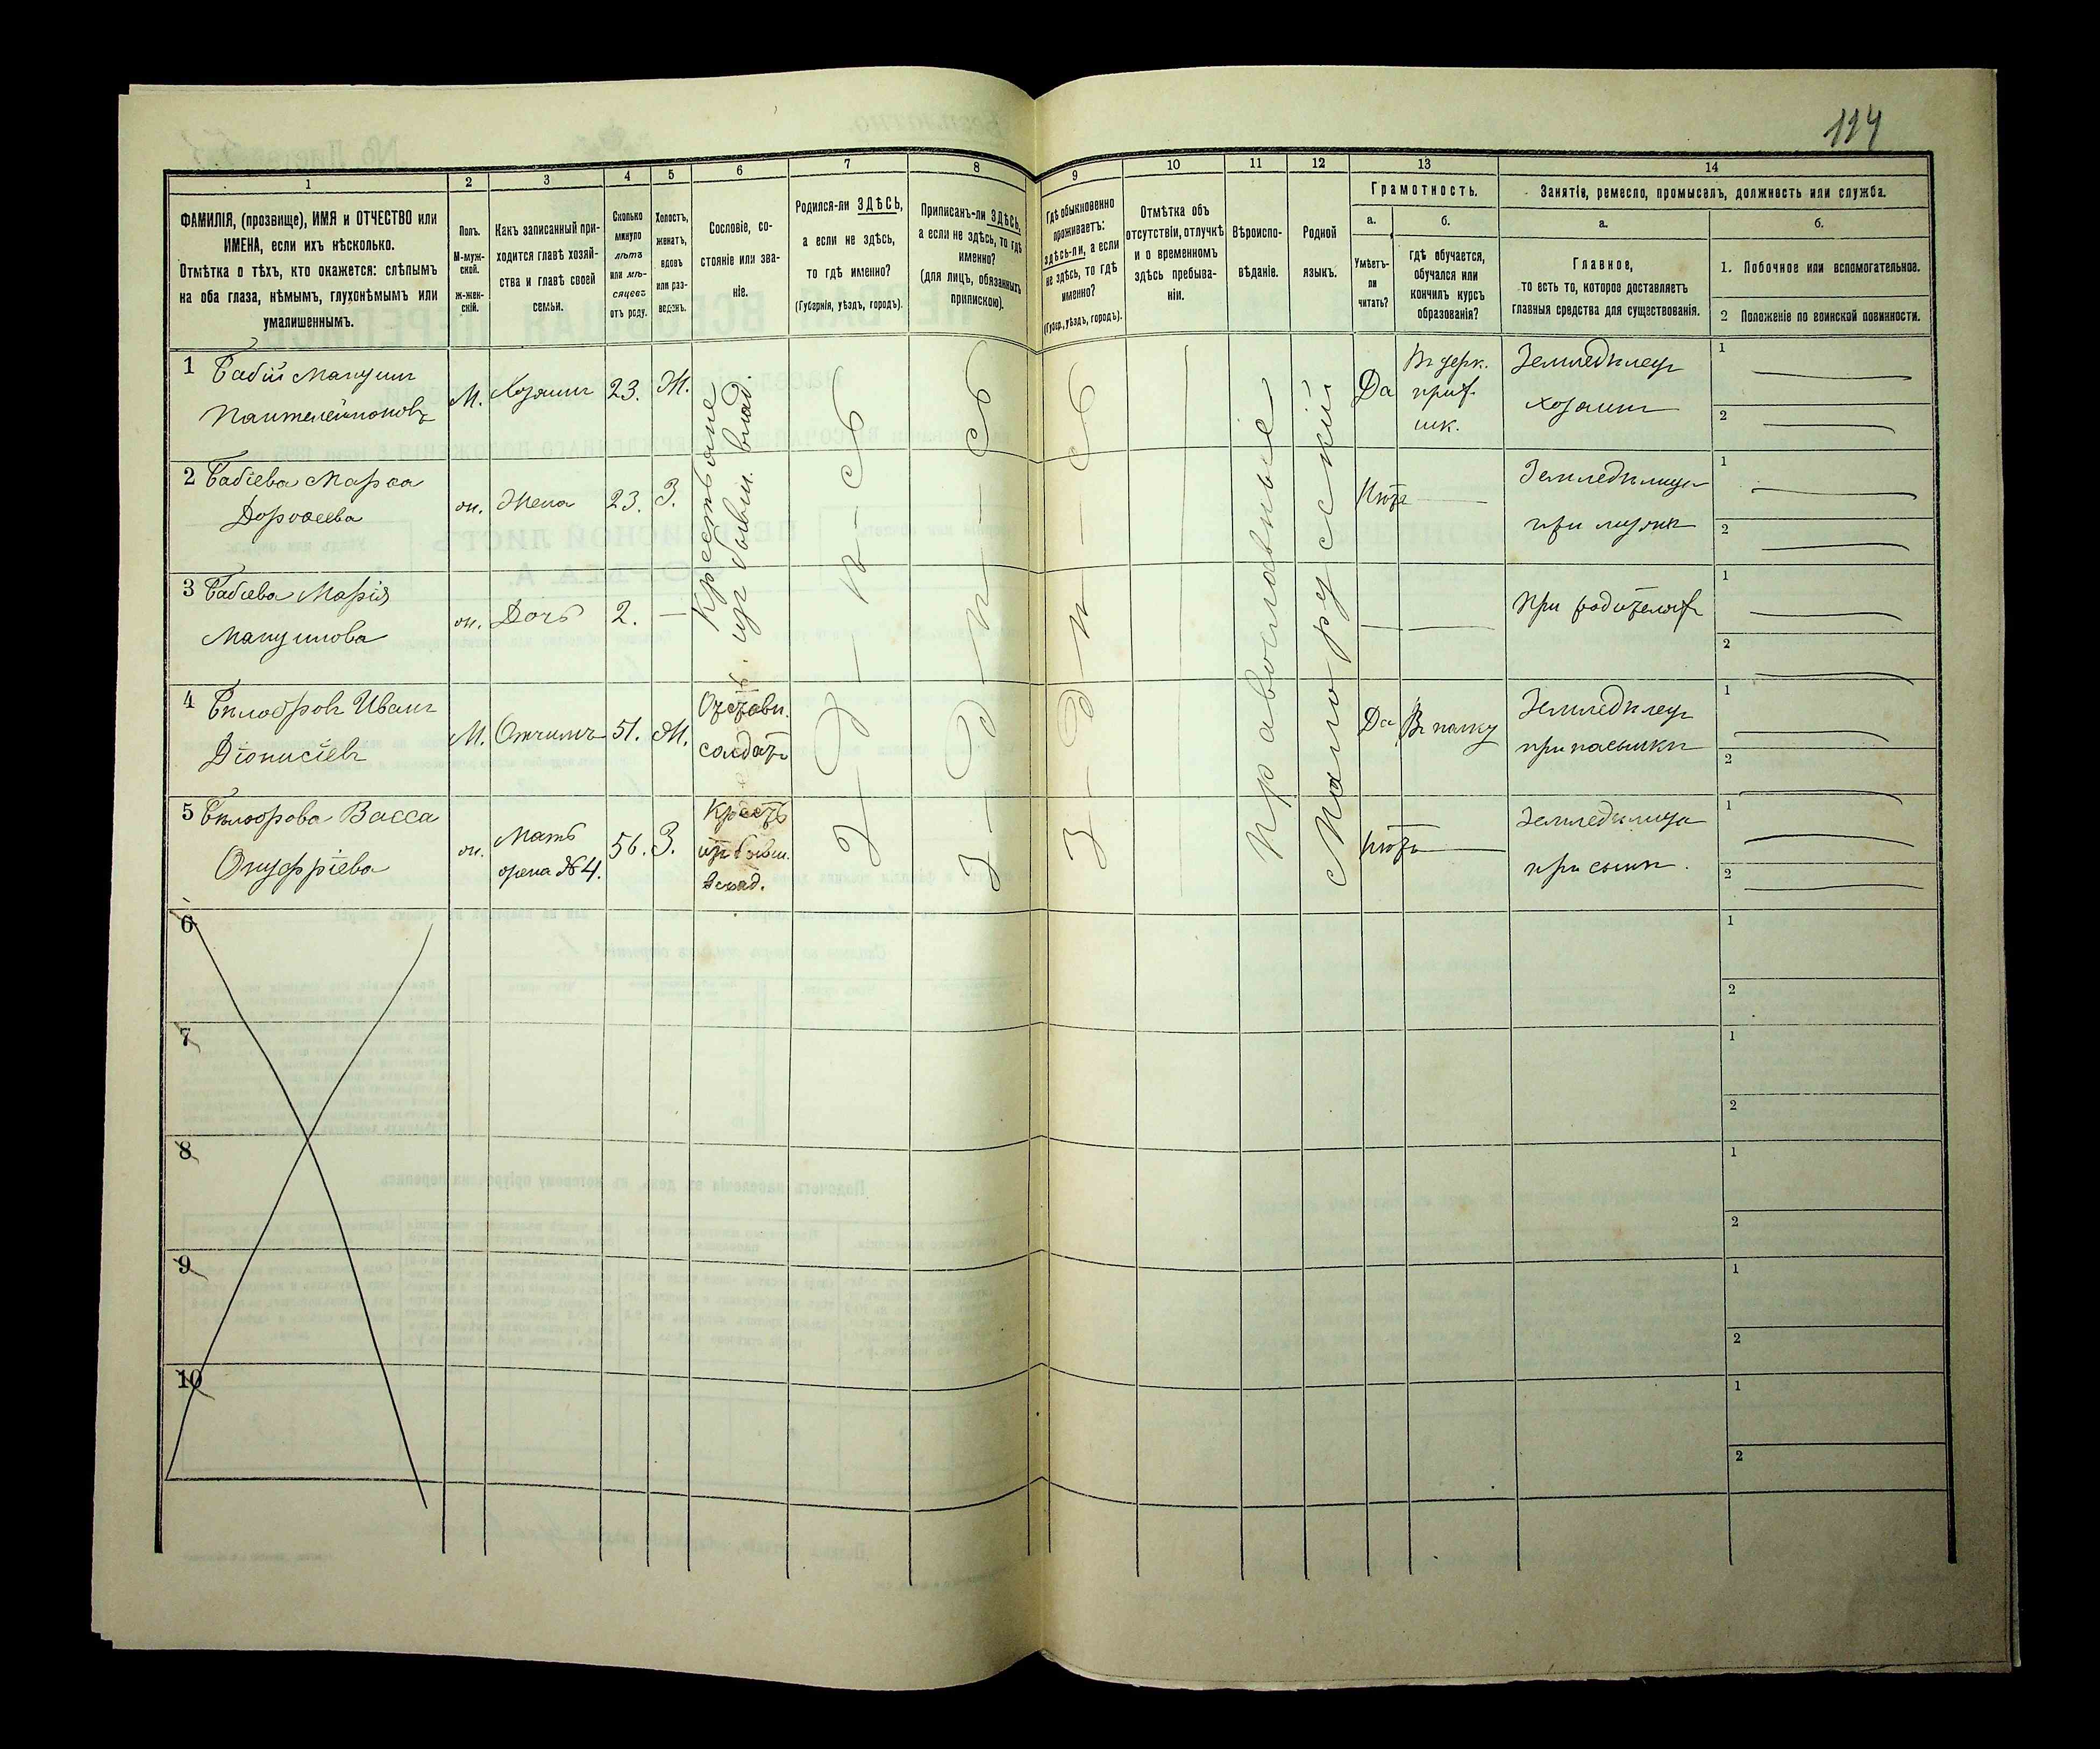 114
1
2
3
4
5
6
7
8
9
10
11
12
13
14
ФАМИЛІЯ, (прозвище), ИМЯ и ОТЧЕСТВО или
ИМЕНА, если ихъ нѣсколько.
Отмѣтка о тѣхъ, кто окажется: слѣпымъ
на оба глаза, нѣмымъ, глухонѣмымъ или
умалишеннымъ.
Полъ.
М-муж-
ской.
Ж-жен-
скій.
Какъ записанный при-
ходится главѣ хозяй-
ства и главѣ своей
семьи.
Сколько
минуло
лѣтъ
или мѣ-
сяцевъ
отъ роду.
Холостъ,
женатъ,
вдовъ
или раз-
веденъ.
Сословіе, со-
стояніе или зва-
ніе.
Родился-ли ЗДѢСЬ,
а если не здѣсь,
то гдѣ именно?
(Губернія, уѣздъ, городъ).
Приписанъ-ли ЗДѢСЬ,
а если не здѣсь, то гдѣ
именно?
(для лицъ, обязанныхъ
припискою).
Гдѣ обыкновенно
проживаетъ:
здѣсь-ли, а если
не здѣсь, то гдѣ
именно?
(Губер., уѣздъ, городъ).
Отмѣтка объ
отсутствіи, отлучкѣ
и о временномъ
здѣсь пребыва-
ніи.
Вѣроиспо-
вѣданіе.
Родной
языкъ.
Грамотность.
а.
Умѣетъ-
ли
читать?
б.
гдѣ обучается,
обучался или
кончилъ курсъ
образованія?
Занятіе, ремесло, промыселъ, должность или служба.
а.
Главное,
то есть то, которое доставляетъ
главныя средства для существованія.
б.
1. Побочное или вспомогательное.
2 Положеніе по воинской повинности.
1 Бабій Мануилъ
Пантелеймоновъ
М. Хозяинъ 23. Ж.
Крестьяне
изъ бывш. влад.
здѣсь
здѣсь
здѣсь
Православные
Малорусскій
Да
Въ церк.
прих.
шк.
Земледѣлецъ
хозяинъ
1
2
2 Бабіева Марѳа
Дороѳеева
ж. Жена 23. З.
Нѣтъ
Земледѣлица
при мужѣ
1
2
3 Бабіева Марія
Мануилова
ж. Дочь 2. —
При родителяхъ
1
2
4 Бѣлобровъ Иванъ
Діонисіевъ
М. Отчимъ 51. Ж.
Отставн.
солдатъ
Да Въ полку
Земледѣлецъ
при пасынкѣ
1
2
5 Бѣлоброва Васса
Онуфріева
ж. Мать
жена № 4. 56. З.
Крест.
изъ бывш.
влад.
Нѣтъ
Земледѣлица
при сынѣ.
1
2
6
1
2
7
1
2
8
1
2
9
1
2
10
1
2